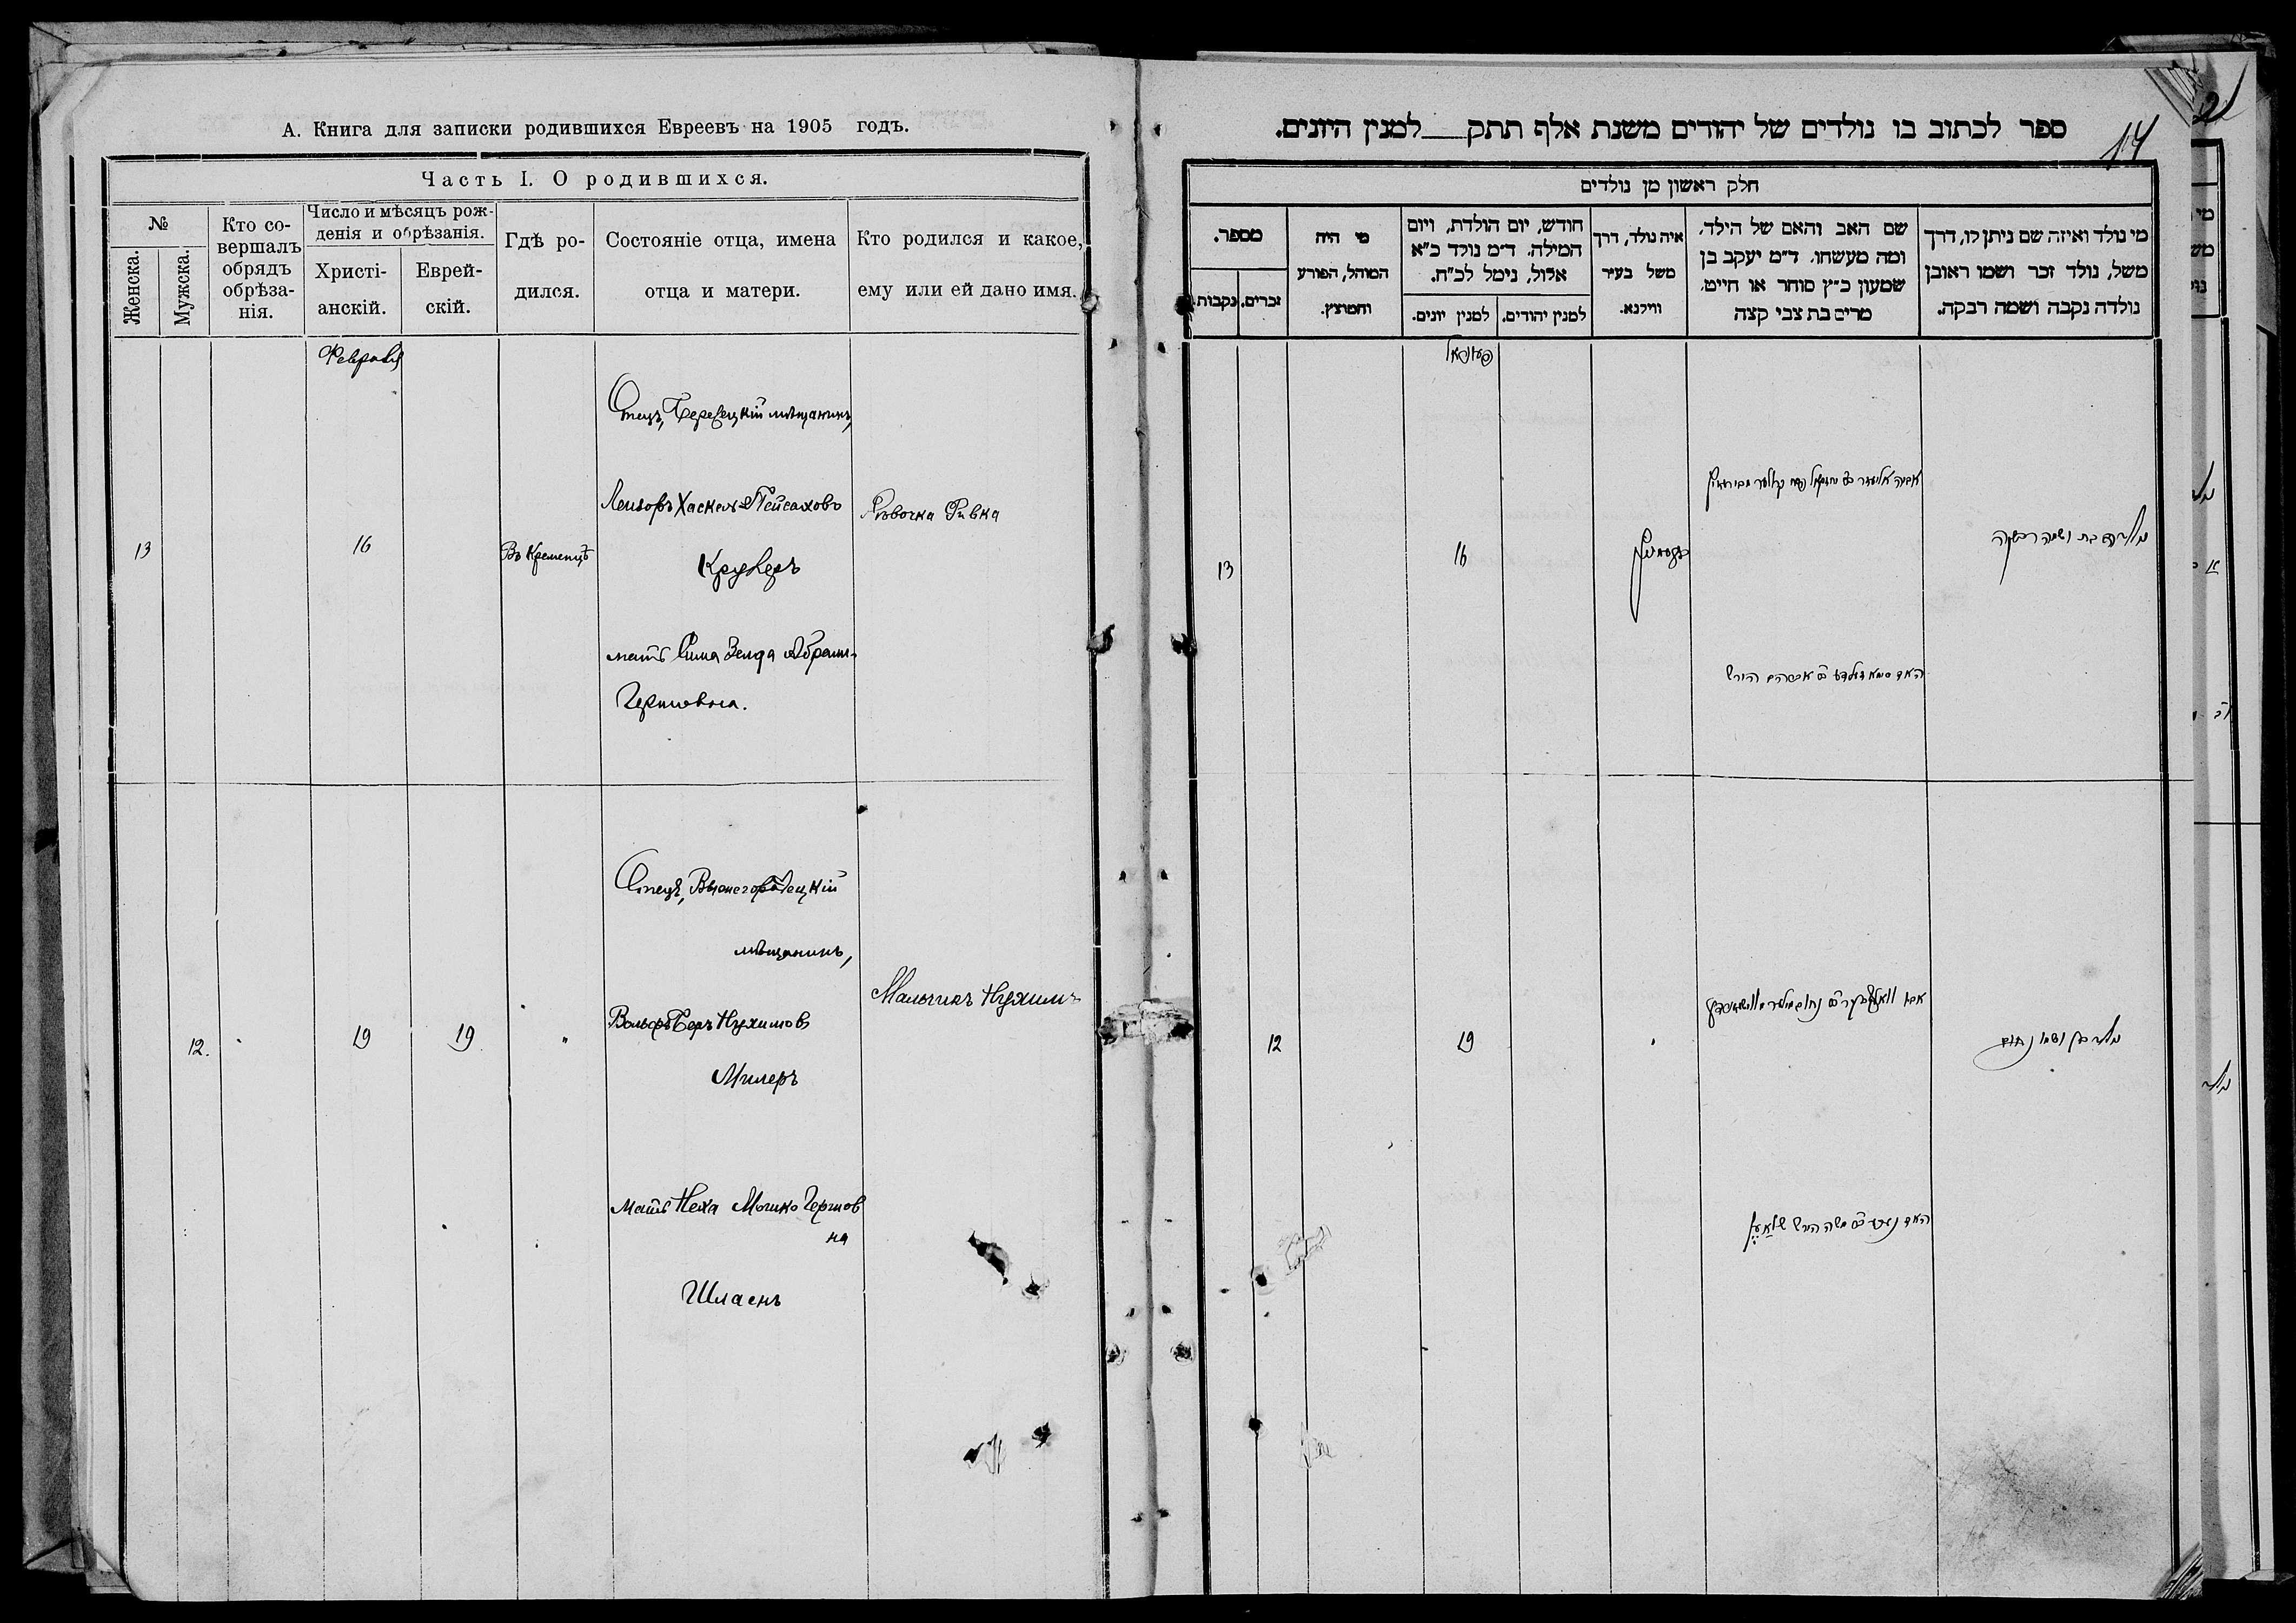 А. Книга для записки родившихся Евреевъ на 1905 годъ.
Часть I. О родившихся.
№
Женска.
Мужска.
Кто со-
вершалъ
обрядъ
обрѣза-
нія.
Число и мѣсяцъ рож-
денія и обрѣзанія.
Христі-
анскій.
Еврей-
скій.
Гдѣ ро-
дился.
Состояніе отца, имена
отца и матери.
Кто родился и какое,
ему или ей дано имя.
Февраля
13
16
Въ Кременцѣ
Отецъ, мѣщанинъ,
Лейзоръ Хаскель Пейсаховъ
Крулеръ
мать Сима Зелда Абрамъ-
Гершковна.
Ревочка Ривка
12.
19
19
"
Отецъ, Вышегородецкій
мѣщанинъ,
Вольфъ Беръ Нухимовъ
Милеръ
Мать Неха Мошко Гершов
на
Шлаенъ
Мальчикъ Нухимъ
ספר לכתוב בו נולדים של יהודים משנת אלף תתק למנין היונים.
14
2
חלק ראשון מן נולדים
מספר.
נקבות.
זכרים.
מי היה
המוהל, הפורע
והמוצץ.
חודש, יום הולדת, ויום
המילה. ד״מ נולד כ״א
אלול, נימל לכ״ח.
למנין יונים.
למנין יהודים.
איה נולד, דרך
משל בעיר
ווילנא.
שם האב והאם של הילד,
ומה מעשהו. ד״מ יעקב בן
שמעון כ״ץ סוחר או חייט,
מרים בת צבי קצה
מי נולד ואיזה שם ניתן לו, דרך
משל, נולד זכר ושמו ראובן
נולדה נקבה ושמה רבקה.
13
16
נולדה בת ושמה רבקה
12
19
נולד בן ושמו נחום